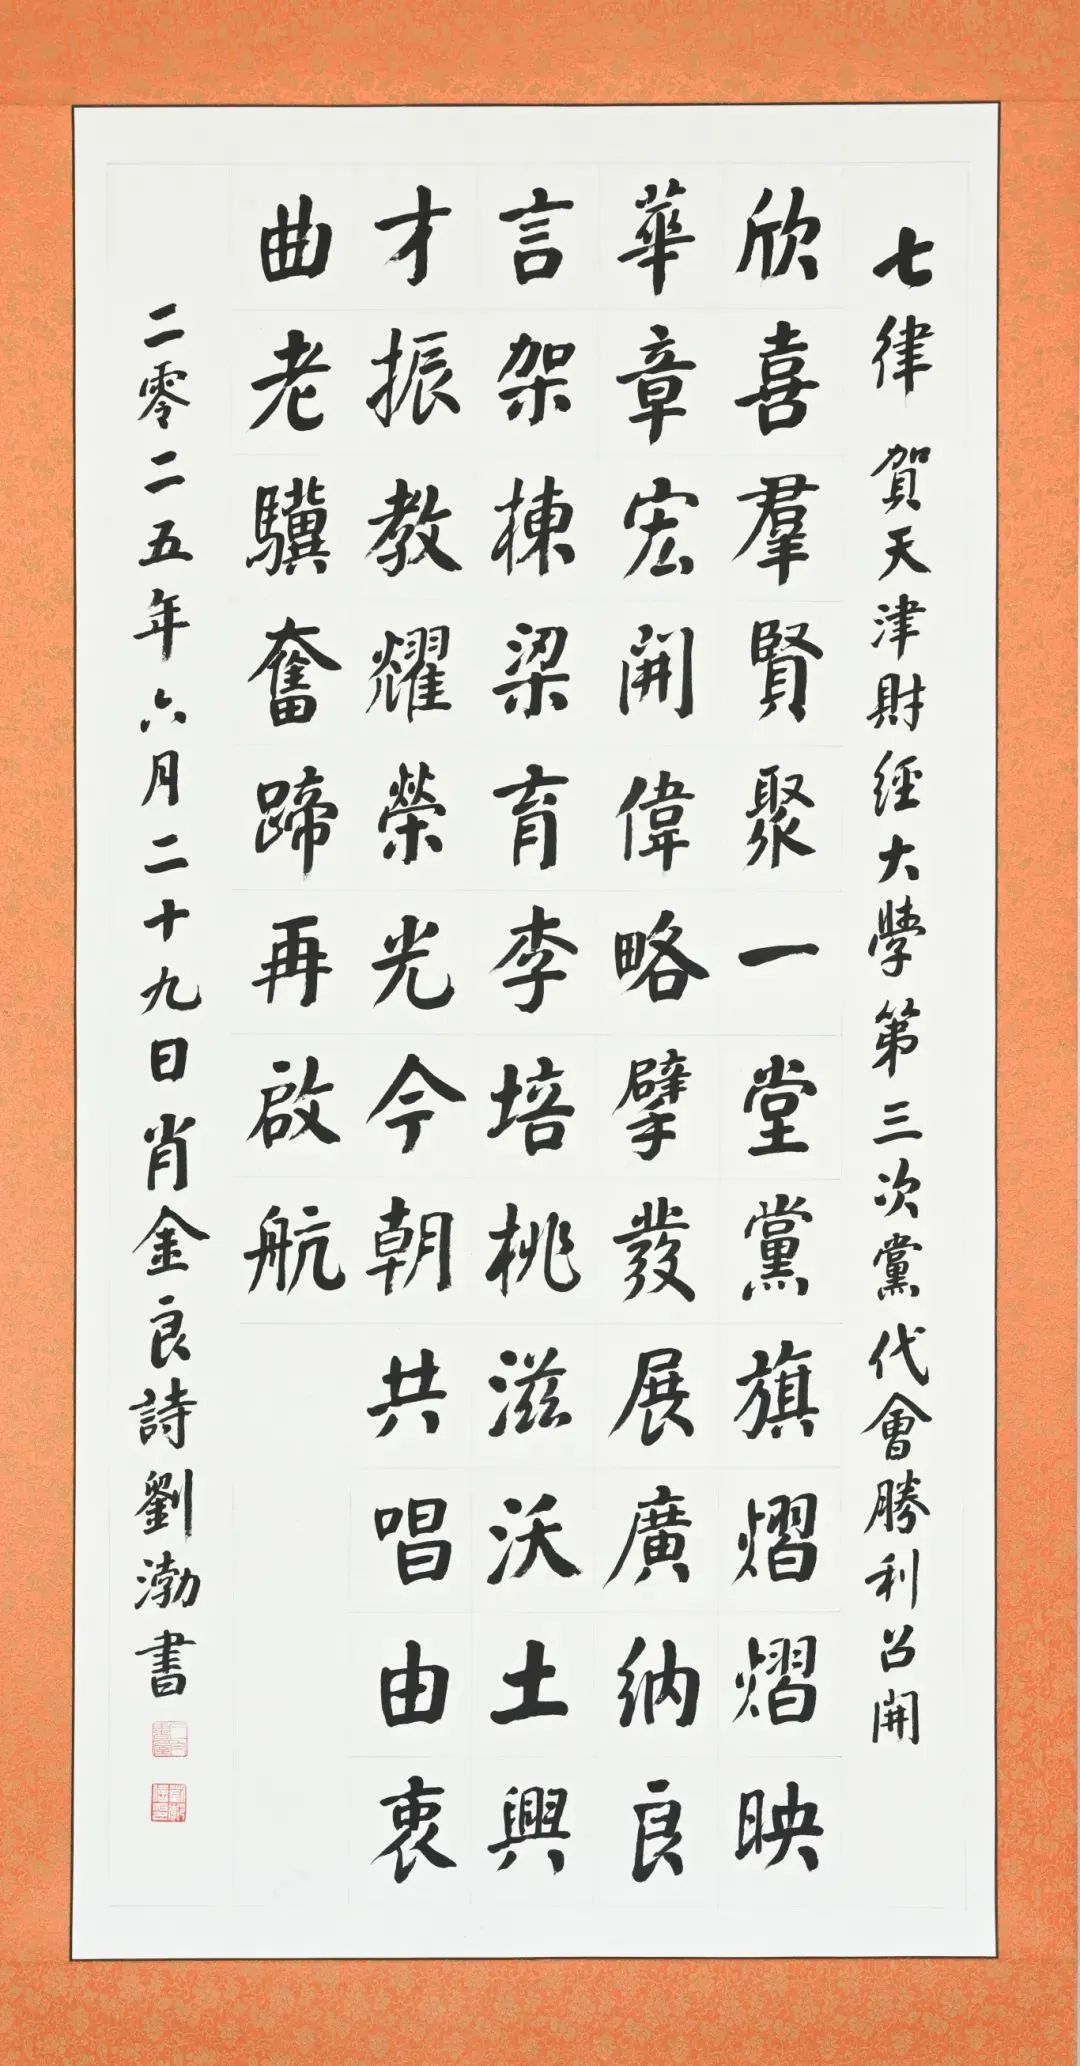 七律 賀天津財經大學第三次黨代會勝利召開
欣喜羣賢聚一堂黨旗熠熠映
華章宏開偉略擘發展廣納良
言架棟梁育李培桃滋沃土興
才振教耀榮光今朝共唱由衷
曲老驥奮蹄再啟航
二零二五年六月二十九日肖金良詩劉渤書